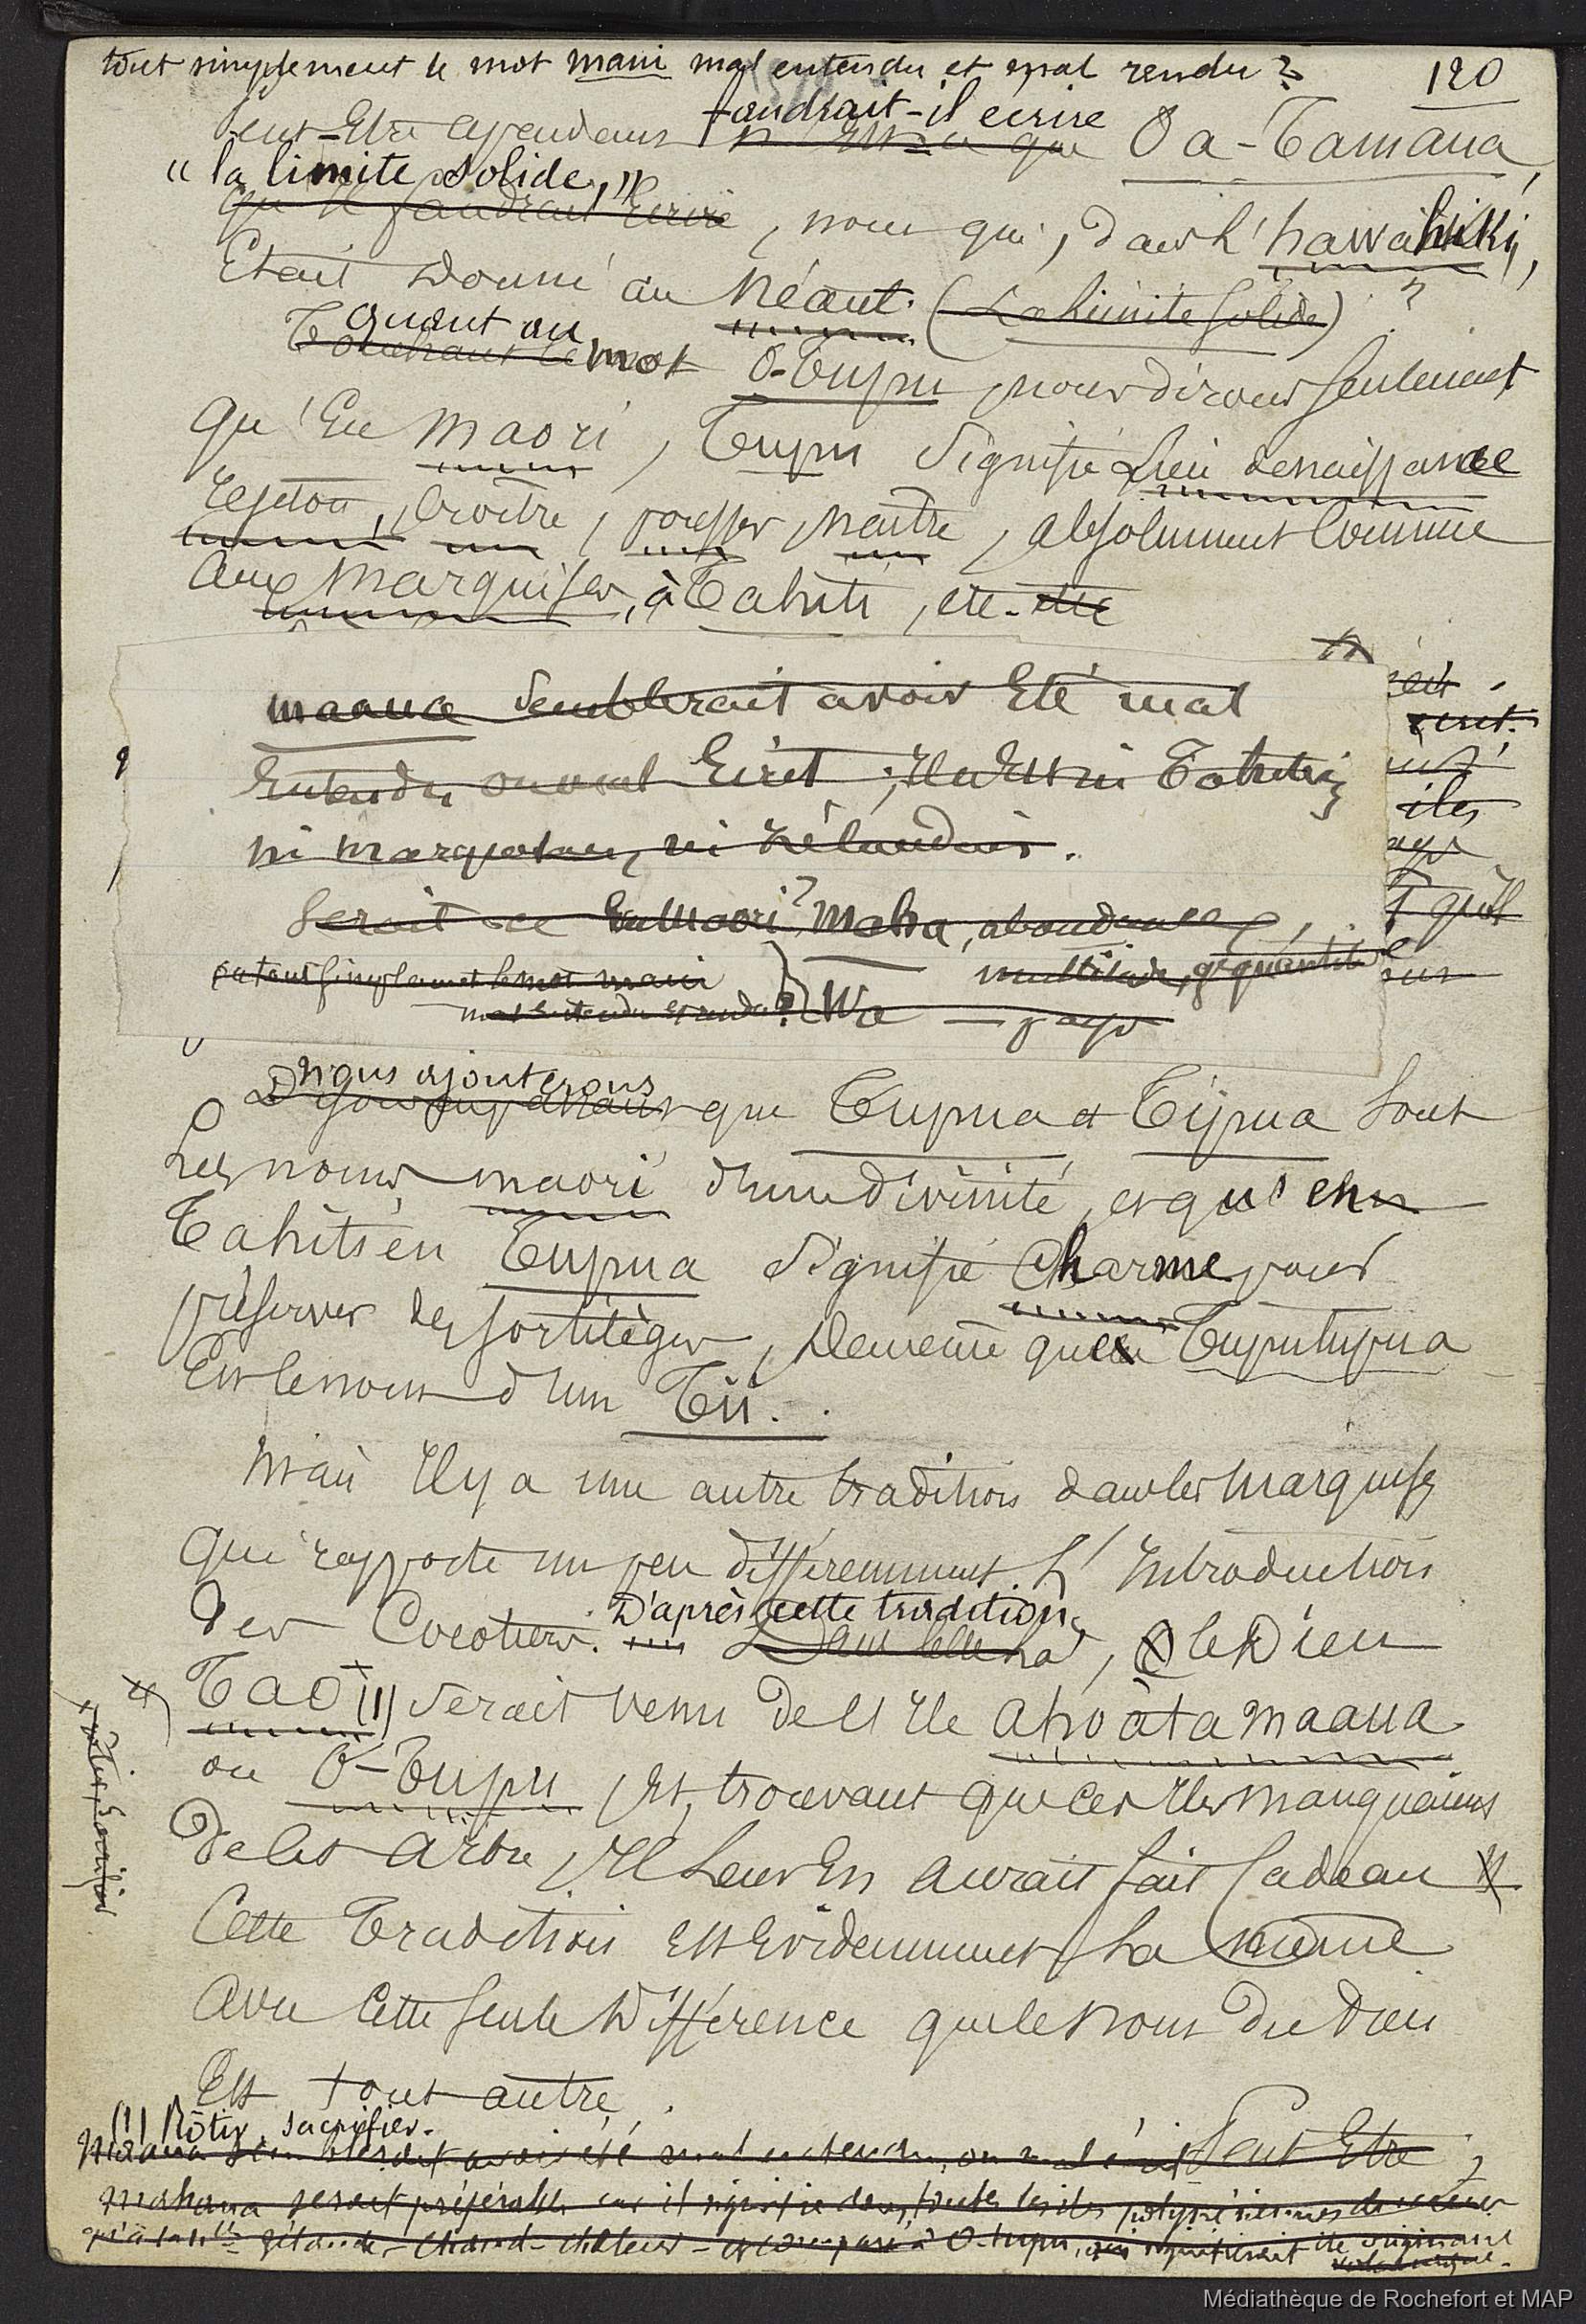 tout simplement le mot mani mal entendu et mal rendu ?
120
faudrait-il écrire
Peut-Etre cependant n'est-ce que Oa-Tamaua,
" la limite solide, "
qu'il faudrait Ecrire, nom qui, dans l'hawahiki,
Etait donné au Néant. (La limite solide) ?
quant au
Touchant le mot O-Tupu, nous dirons seulement
qu'En maori, Tupu signifie Lieu de naissance
rejeton, Croître, pousser, naître, absolument Comme
aux Marquises, à Tahiti, etc. etc
maaua semblerait avoir Eté mal
Entendu ou mal Ecrit ; Il n'Est ni Tahiti
ni marquesan, ni zélandais.
Serait-ce En Maori ? Maha, abondance,
multitude, gde quantité
ou tout simplement le mot maui
mal entendu et rendu ? Wa — pays
nous ajouterons
que Tupua et Tipua sont
les noms maori d'une divinité, et qu'en
Tahitien Tupua signifie Charme pour
préserver des sortilèges, de même que Tuputupua
Est le nom d'un Tii.
Mais Il y a une autre tradition dans les Marquises
qui rapporte un peu différemment L'Introduction
des Cocotiers. D'après cette tradition,
Dans celle-là, le Dieu
Tao (1) serait venu de l'Ile ahoàtamaaua
ou O-Tupu, Et, trouvant que ces Iles manquaient
de cet arbre, Il Leur En aurait fait Cadeau
Cette Tradition Est Evidemment La même
avec cette seule différence que le nom du Dieu
Est tout autre.
(1) Rôtir, sacrifier.
Maaua semblerait avoir été mal entendu, ou mal écrit Peut Etre
mahana serait préférable car il signifie dans toutes les îles polynésiennes
Zélande, chaud - chaleur - et comparé à O-tupu, qui signifierait île